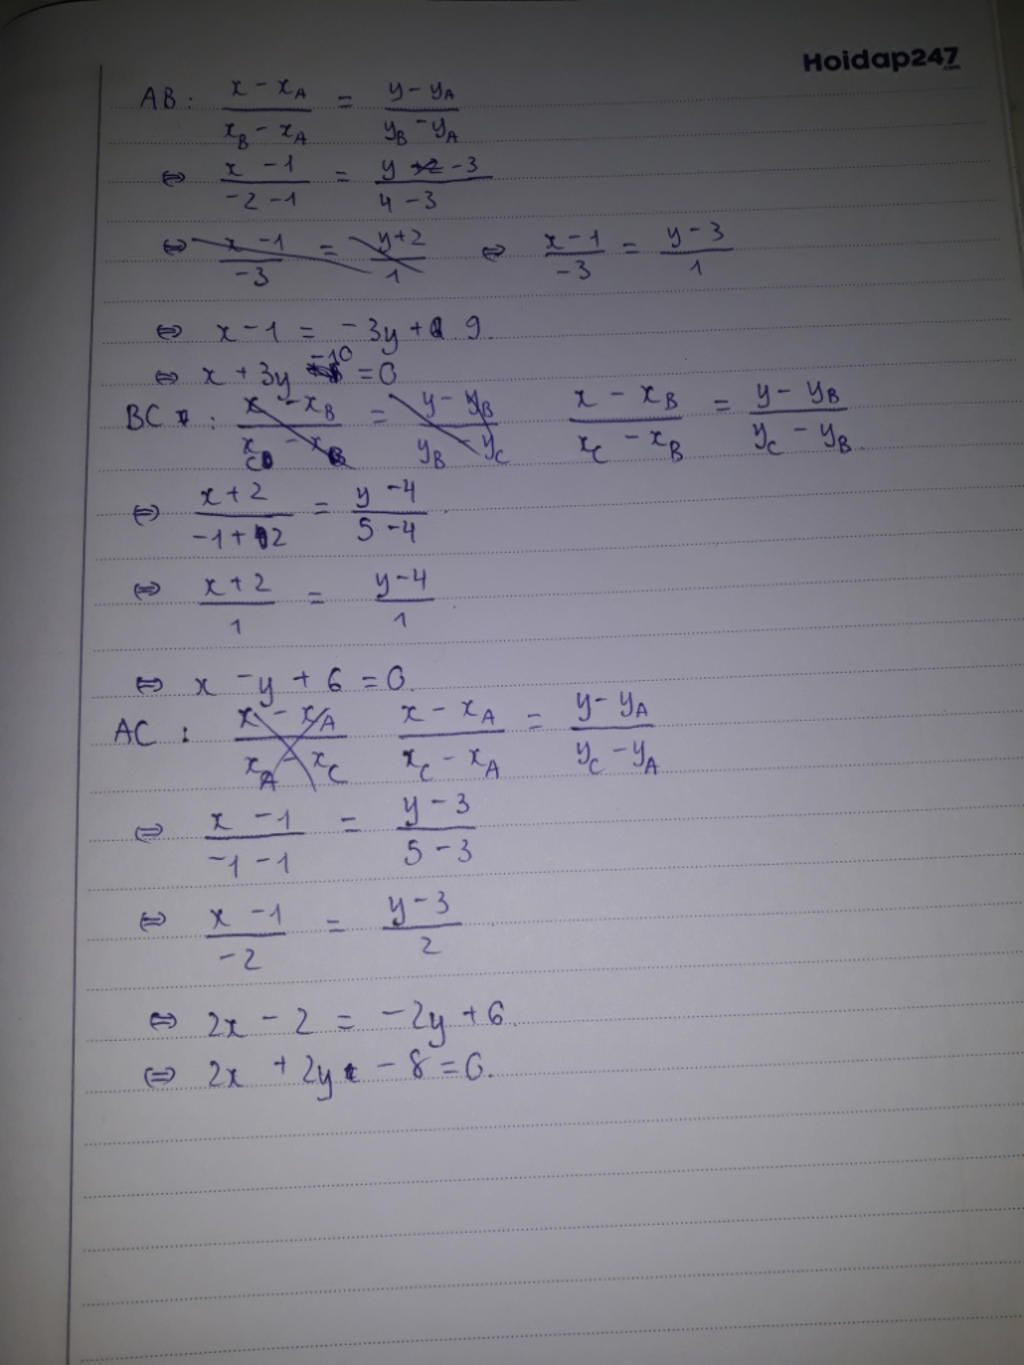 Hoidap247
.com
AB: (x - x_A)/(x_B - x_A) = (y - y_A)/(y_B - y_A)
⇔ (x - 1)/(-2 - 1) = (y - 3)/(4 - 3)
⇔ (x - 1)/(-3) = (y + 2)/1 ⇔ (x - 1)/(-3) = (y - 3)/1
⇔ x - 1 = -3y + 9.
⇔ x + 3y - 10 = 0
BC: (x - x_B)/(x_C - x_B) = (y - y_B)/(y_B - y_C) (x - x_B)/(x_C - x_B) = (y - y_B)/(y_C - y_B)
⇔ (x + 2)/(-1 + 2) = (y - 4)/(5 - 4)
⇔ (x + 2)/1 = (y - 4)/1
⇔ x - y + 6 = 0.
AC: (x - x_A)/(x_A - x_C) (x - x_A)/(x_C - x_A) = (y - y_A)/(y_C - y_A)
⇔ (x - 1)/(-1 - 1) = (y - 3)/(5 - 3)
⇔ (x - 1)/(-2) = (y - 3)/2
⇔ 2x - 2 = -2y + 6.
⇔ 2x + 2y - 8 = 0.